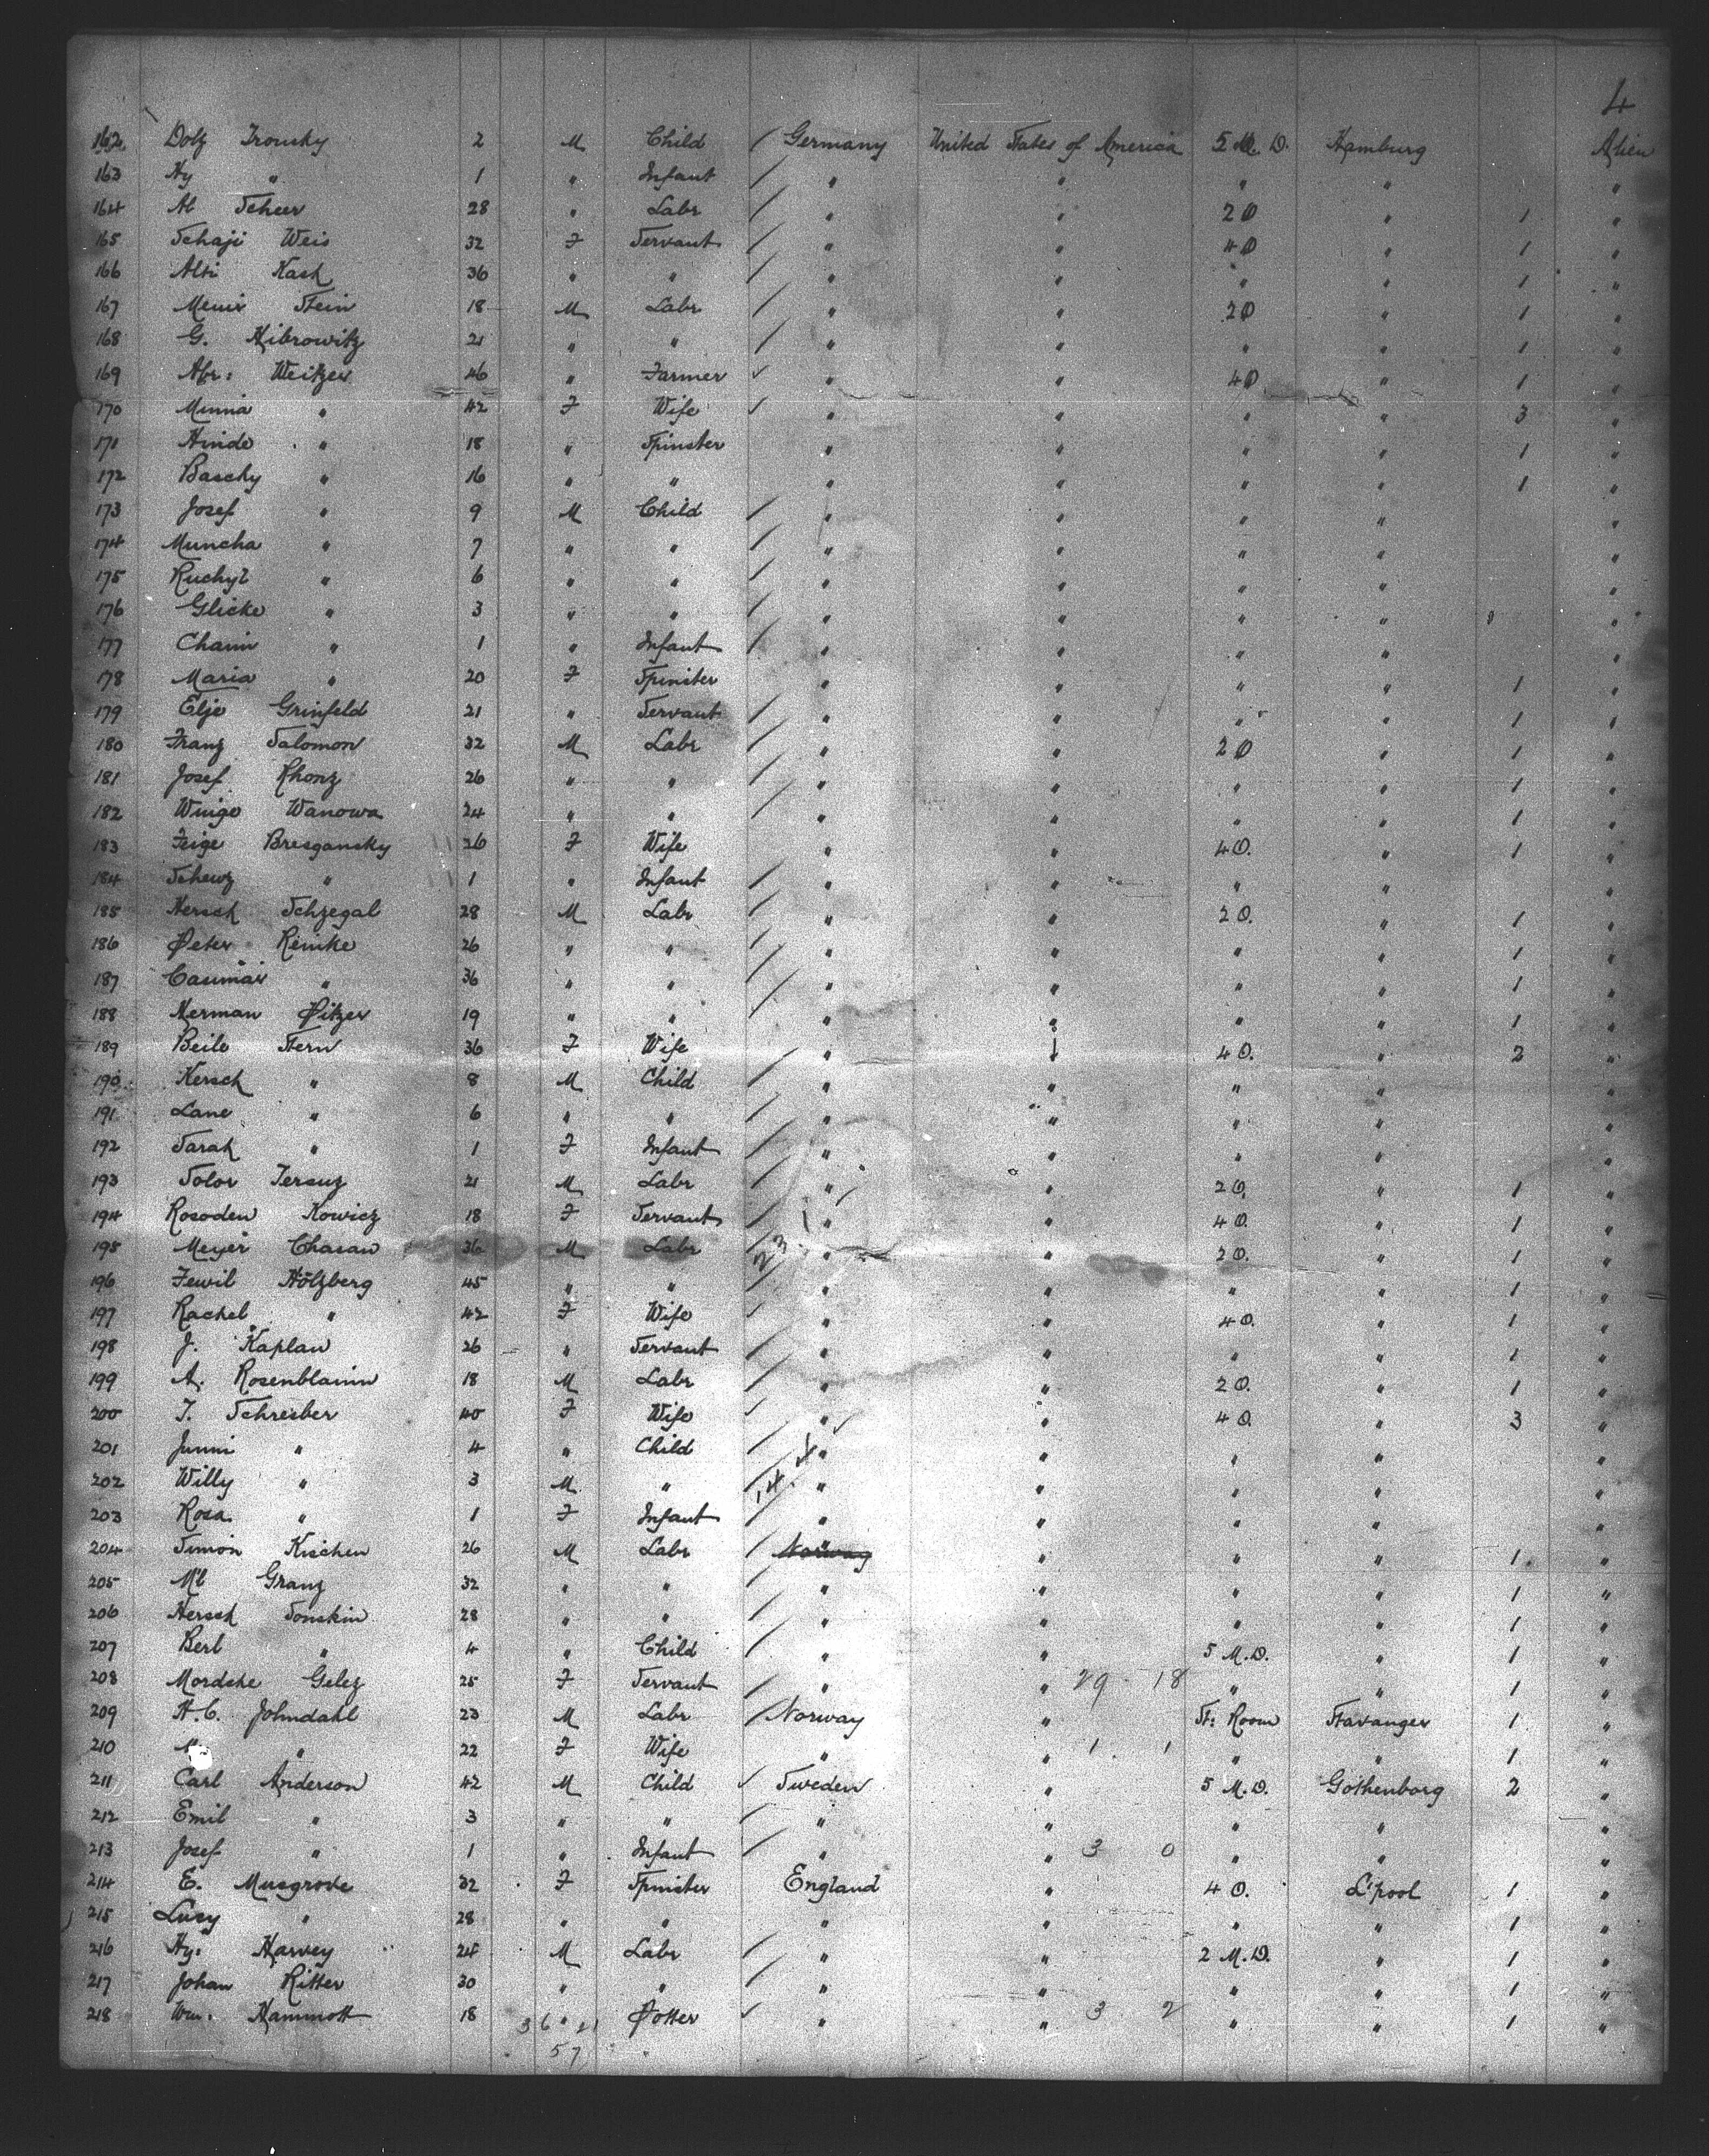 4
162 Dolz Tronsky 2 M Child / Germany United States of America 5 M. D. Hamburg Alien
163 Hy " 1 " Infant / " " " " "
164 Al Scheer 28 " Labr / " " 20 " 1 "
165 Schaji Weis 32 F Servant / " " 40 " 1 "
166 Alti Kash 36 " " / " " " " 1 "
167 Stein 18 M Labr / " " 20 " 1 "
168 G. Hibrowitz 21 " " / " " " " 1 "
169 Abr: Weitzer 46 " Farmer ✓ " " 40 " 1 "
170 Minna " 42 F Wife ✓ " " " " 3 "
171 Hinde " 18 " Spinster " " " " 1 "
172 Baschy " 16 " " " " " " 1 "
173 Josef " 9 M Child / " " " " "
174 Muncha " 7 " " / " " " " "
175 Ruchyl " 6 " " / " " " " "
176 Glicke " 3 " " / " " " " "
177 Chaim " 1 " Infant / " " " " "
178 Maria " 20 F Spinster " " " " 1 "
179 Elje Grinfeld 21 " Servant / " " " " 1 "
180 Franz Salomon 32 M Labr / " " 20 " 1 "
181 Josef Khonz 26 " " / " " " " 1 "
182 Winge Wanowa 24 " " / " " " " 1 "
183 Feige Bresgansky 26 F Wife " " 40. " 1 "
184 Schewz " 1 " Infant / " " " " "
185 Hersch Schzegal 28 M Labr / " " 20. " 1 "
186 Peter Reinke 26 " " / " " " " 1 "
187 Casimar " 36 " " / " " " " 1 "
188 Herman Pitzer 19 " " / " " " " 1 "
189 Beile Stern 36 F Wife " " 40. " 2 "
190 Hersch " 8 M Child / " " " " "
191 Lane " 6 " " / " " " " "
192 Sarah " 1 F Infant / " " " " "
193 Solor Tersuz 21 M Labr / " " 20. " 1 "
194 Rosoden Kowicz 18 F Servant / " " 40. " 1 "
195 Meyer Chasan 36 M Labr / 23 " " 20. " 1 "
196 Fewil Hölzberg 45 " " / " " " " 1 "
197 Rachel " 42 F Wife ✓ " " 40. " 1 "
198 J. Kaplan 26 " Servant / " " " " 1 "
199 A. Rosenblaum 18 M Labr / " " 20. " 1 "
200 T. Schreiber 40 F Wife ✓ " " 40. " 3 "
201 Junni " 4 " Child / " " " " "
202 Willy " 3 M " / 14. " " " " "
203 Rosa " 1 F Infant / " " " " "
204 Simon Kischen 26 M Labr / Norway " " " 1 "
205 Ml Granz 32 " " / " " " " 1 "
206 Hersch Sonskin 28 " " / " " " " 1 "
207 Berl " 4 " Child / " " 5 M.D. " 1 "
208 Mordche Gelez 25 F Servant / " " 29 - 18 " " 1 "
209 H.C. Johndahl 23 M Labr / Norway " St: Room Stavanger 1 "
210 M " 22 F Wife " " 1 . 1 " " 1 "
211 Carl Anderson 42 M Child ✓ Sweden " 5 M.D. Gothenborg 2 "
212 Emil " 3 " " / " " " " "
213 Josef " 1 " Infant / " " 3 0 " " "
214 E. Musgrove 32 F Spinster England " 40. L'pool 1 "
215 Lucy " 28 " " " " " " 1 "
216 Hy: Harvey 24 M Labr / " " 2 M.D. " 1 "
217 Johan Ritter 30 " " / " " " " 1 "
218 Wm. Hammott 18 " Potter ✓ " " 3 2 " " 1 "
36 . 21
57